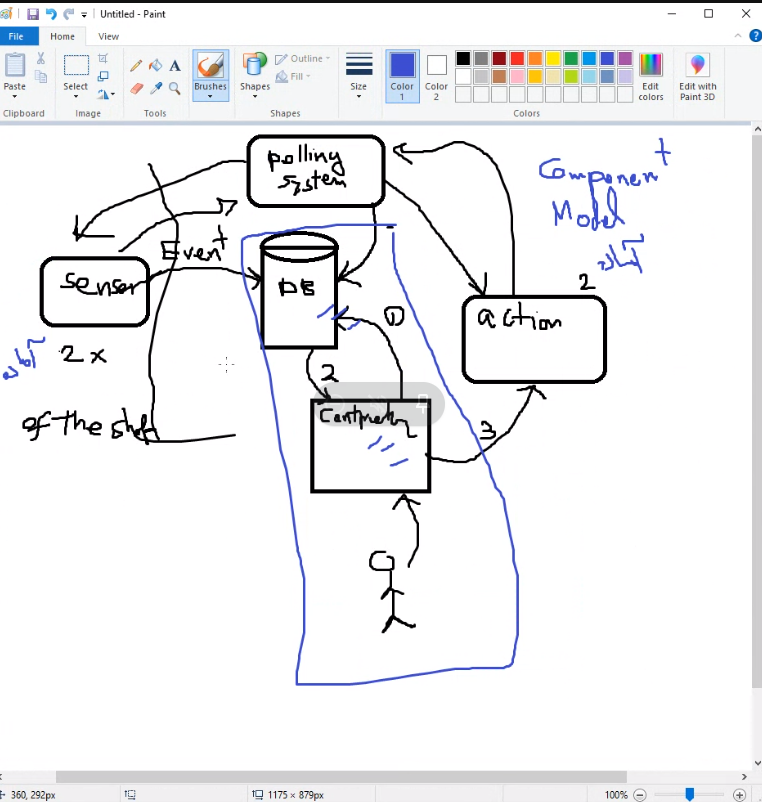 Untitled - Paint
File
Home
View
Paste
Clipboard
Select
Image
A
Tools
Brushes
Shapes
Outline
Fill
Shapes
Size
Color
1
Color
2
Edit
colors
Edit with
Paint 3D
Colors
polling
system
Component
Model
Event
senser
DB
1
2
action
2 x
2
of the
3
360, 292px
1175 × 879px
100%